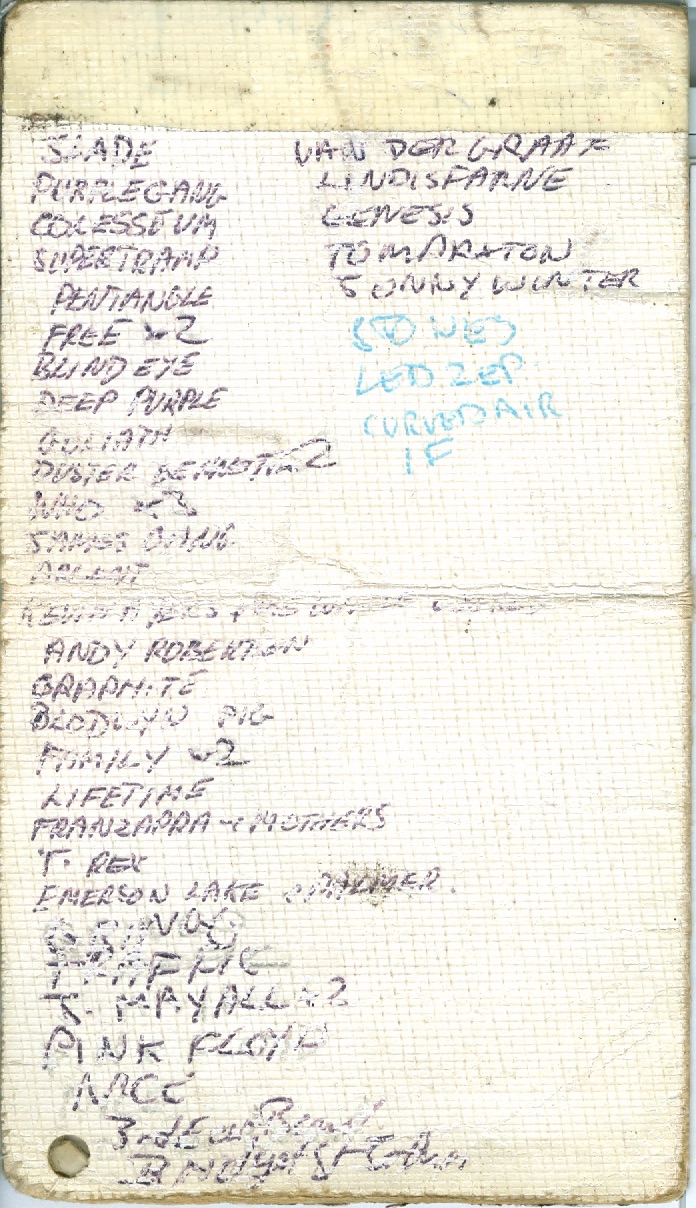 SLADE
PURPLEGANG
COLESSEUM
SUPERTRAMP
PENTANGLE
FREE x2
BLIND EYE
DEEP PURPLE
GOLIATH
DUSTER BENNETT x2
WHO x3
JAMES GANG
ARGENT
KEVIN AYERS + THE WHOLE WORLD
ANDY ROBERTSON
GRAPHITE
BLODWYN PIG
FAMILY x2
LIFETIME
FRANZAPPA + MOTHERS
T. REX
EMERSON LAKE & PALMER.
TRAFFIC
J. MAYALL x2
PINK FLOYD
ARCC
3rd Ear Band
VAN DER GRAAF
LINDISFARNE
GENESIS
TOM PAXTON
JONNY WINTER
STONES
LED ZEP
CURVED AIR
IF